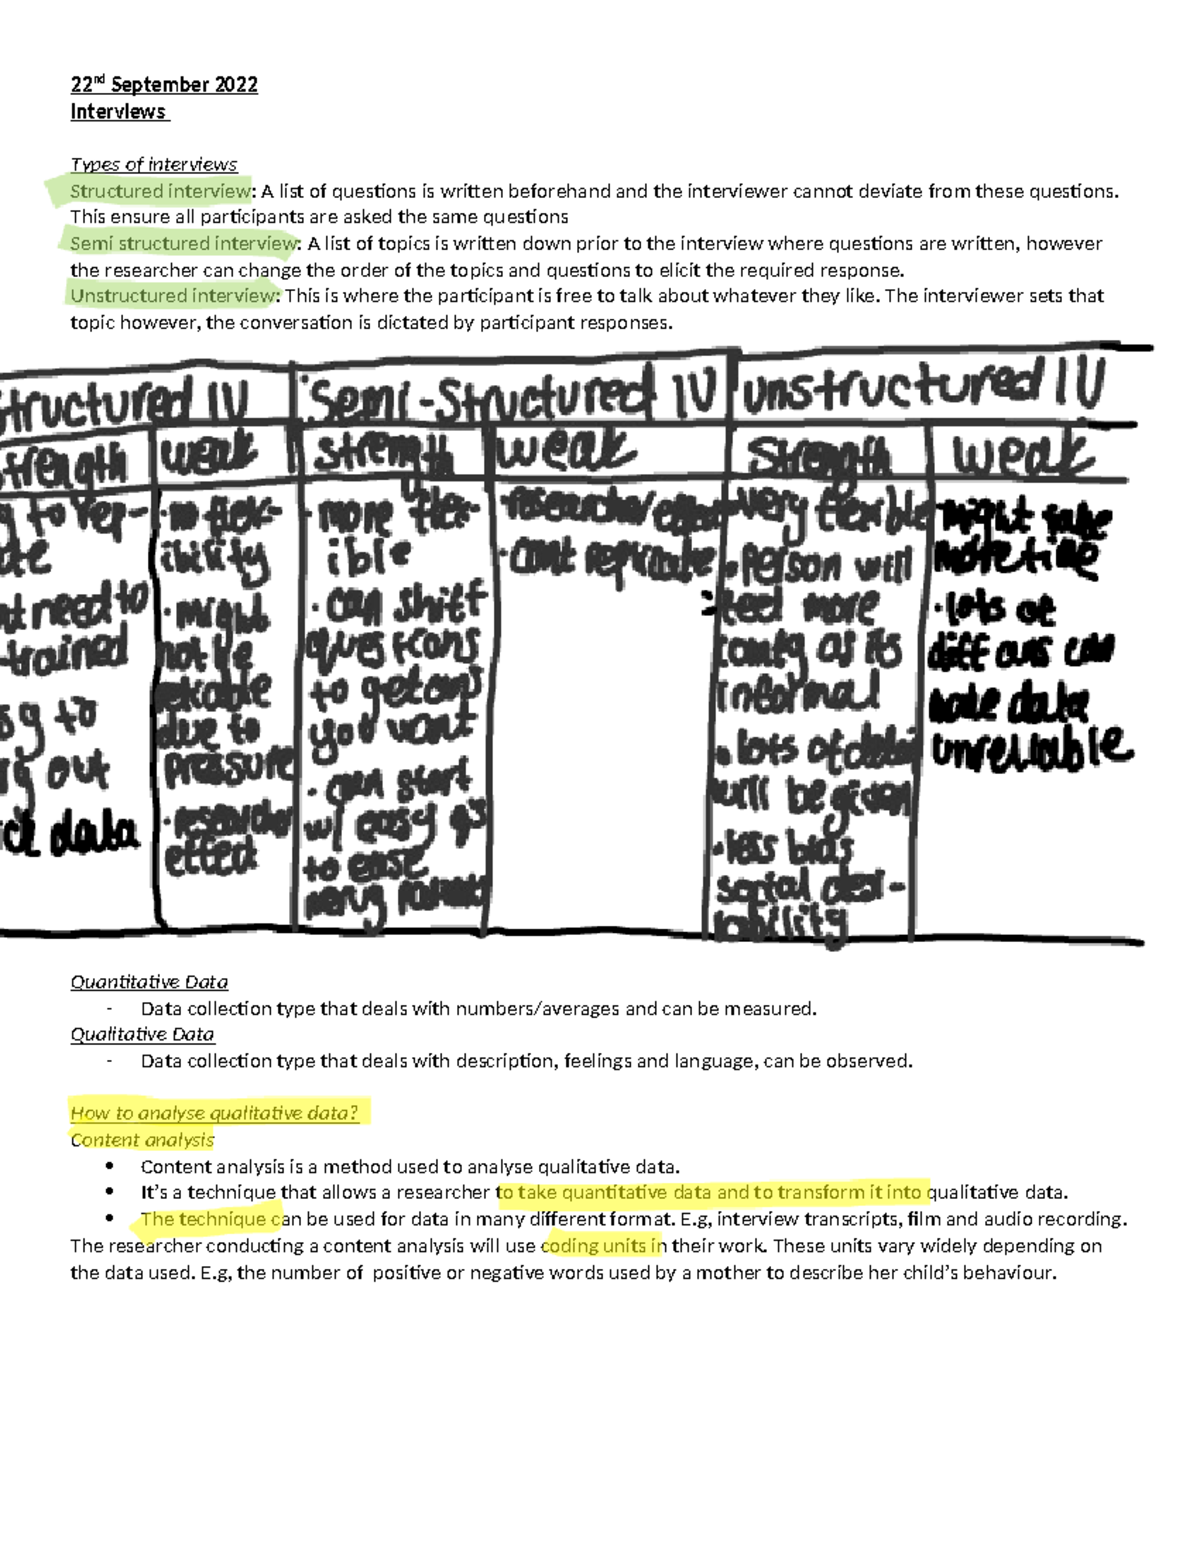 22nd September 2022
Interviews
Types of interviews
Structured interview: A list of questions is written beforehand and the interviewer cannot deviate from these questions.
This ensure all participants are asked the same questions
Semi structured interview: A list of topics is written down prior to the interview where questions are written, however
the researcher can change the order of the topics and questions to elicit the required response.
Unstructured interview: This is where the participant is free to talk about whatever they like. The interviewer sets that
topic however, the conversation is dictated by participant responses.
tructured IV
Semi-Structured IV
unstructured IV
trength
weak
strength
weak
strength
weak
to rep-
need to
trained
to
out
data
· no flex-
ibility
· might
not be
due to
pressure
· researcher
effect
· more flex-
ible
· can shift
to get ans
you want
· can start
w/ easy q's
to ease
· researcher effect
· cant replicate
· very flexible
· person will
feel more
as its
informal
· lots of
will be given
· less bias
social desi-
rability
might take
more time
· lots of
diff ans can
make data
unreliable
Quantitative Data
- Data collection type that deals with numbers/averages and can be measured.
Qualitative Data
- Data collection type that deals with description, feelings and language, can be observed.
How to analyse qualitative data?
Content analysis
• Content analysis is a method used to analyse qualitative data.
• It's a technique that allows a researcher to take quantitative data and to transform it into qualitative data.
• The technique can be used for data in many different format. E.g, interview transcripts, film and audio recording.
The researcher conducting a content analysis will use coding units in their work. These units vary widely depending on
the data used. E.g, the number of positive or negative words used by a mother to describe her child's behaviour.